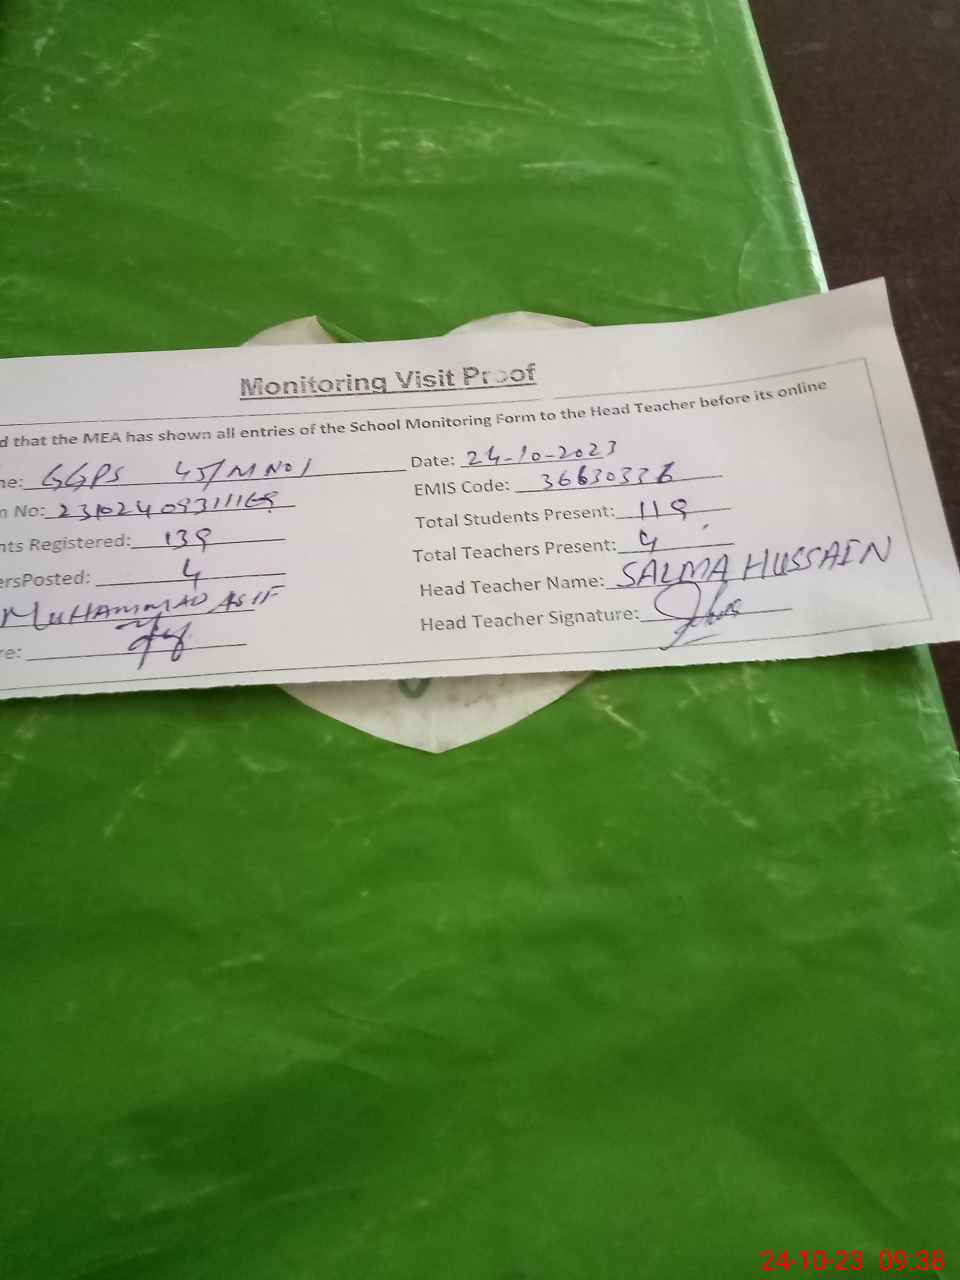 Monitoring Visit Proof
d that the MEA has shown all entries of the School Monitoring Form to the Head Teacher before its online
ne: GGPS 45/M NO1 Date: 24-10-2023
n No: EMIS Code:
nts Registered: 139 Total Students Present: 119
ersPosted: 4 Total Teachers Present: 4
MUHAMMAD ASIF Head Teacher Name: SALMA HUSSAIN
re: Head Teacher Signature:
24-10-23 09.38